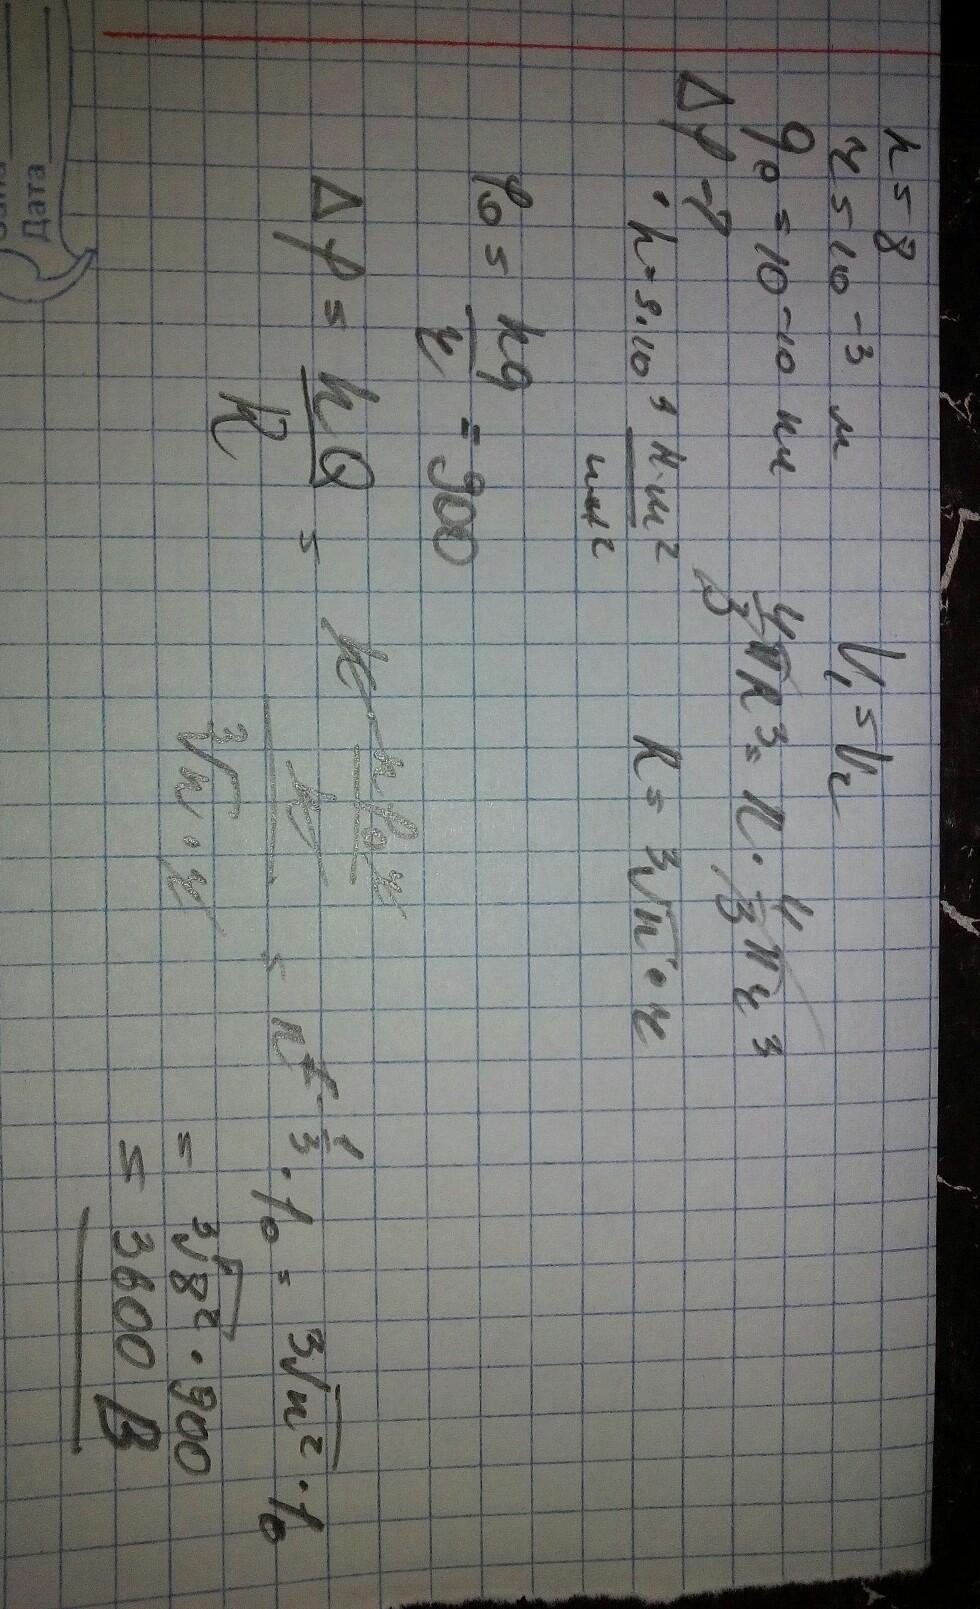 n = 8
r = 10^-3 м
q₀ = 10^-10 Кл
Δφ - ?
k = 9·10^9 Н·м²/Кл²
V₁ = V₂
4/3 πR³ = n · 4/3 πr³
R = ³√n · r
φ₀ = kq/r = 900
Δφ = kQ/R =
³√n · r
= n^(1-1/3) · φ₀ = ³√n² · φ₀
= ³√8² · 900
= 3600 В
Дата